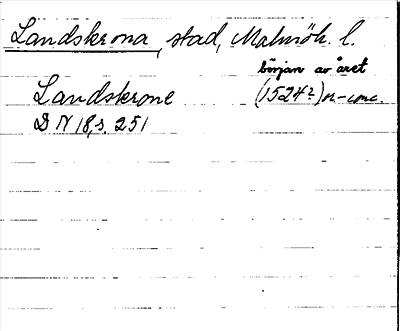 Landskrona, stad, Malmöh. l.
början av året
Landskrone (1524?) n-
D N 18, s. 251